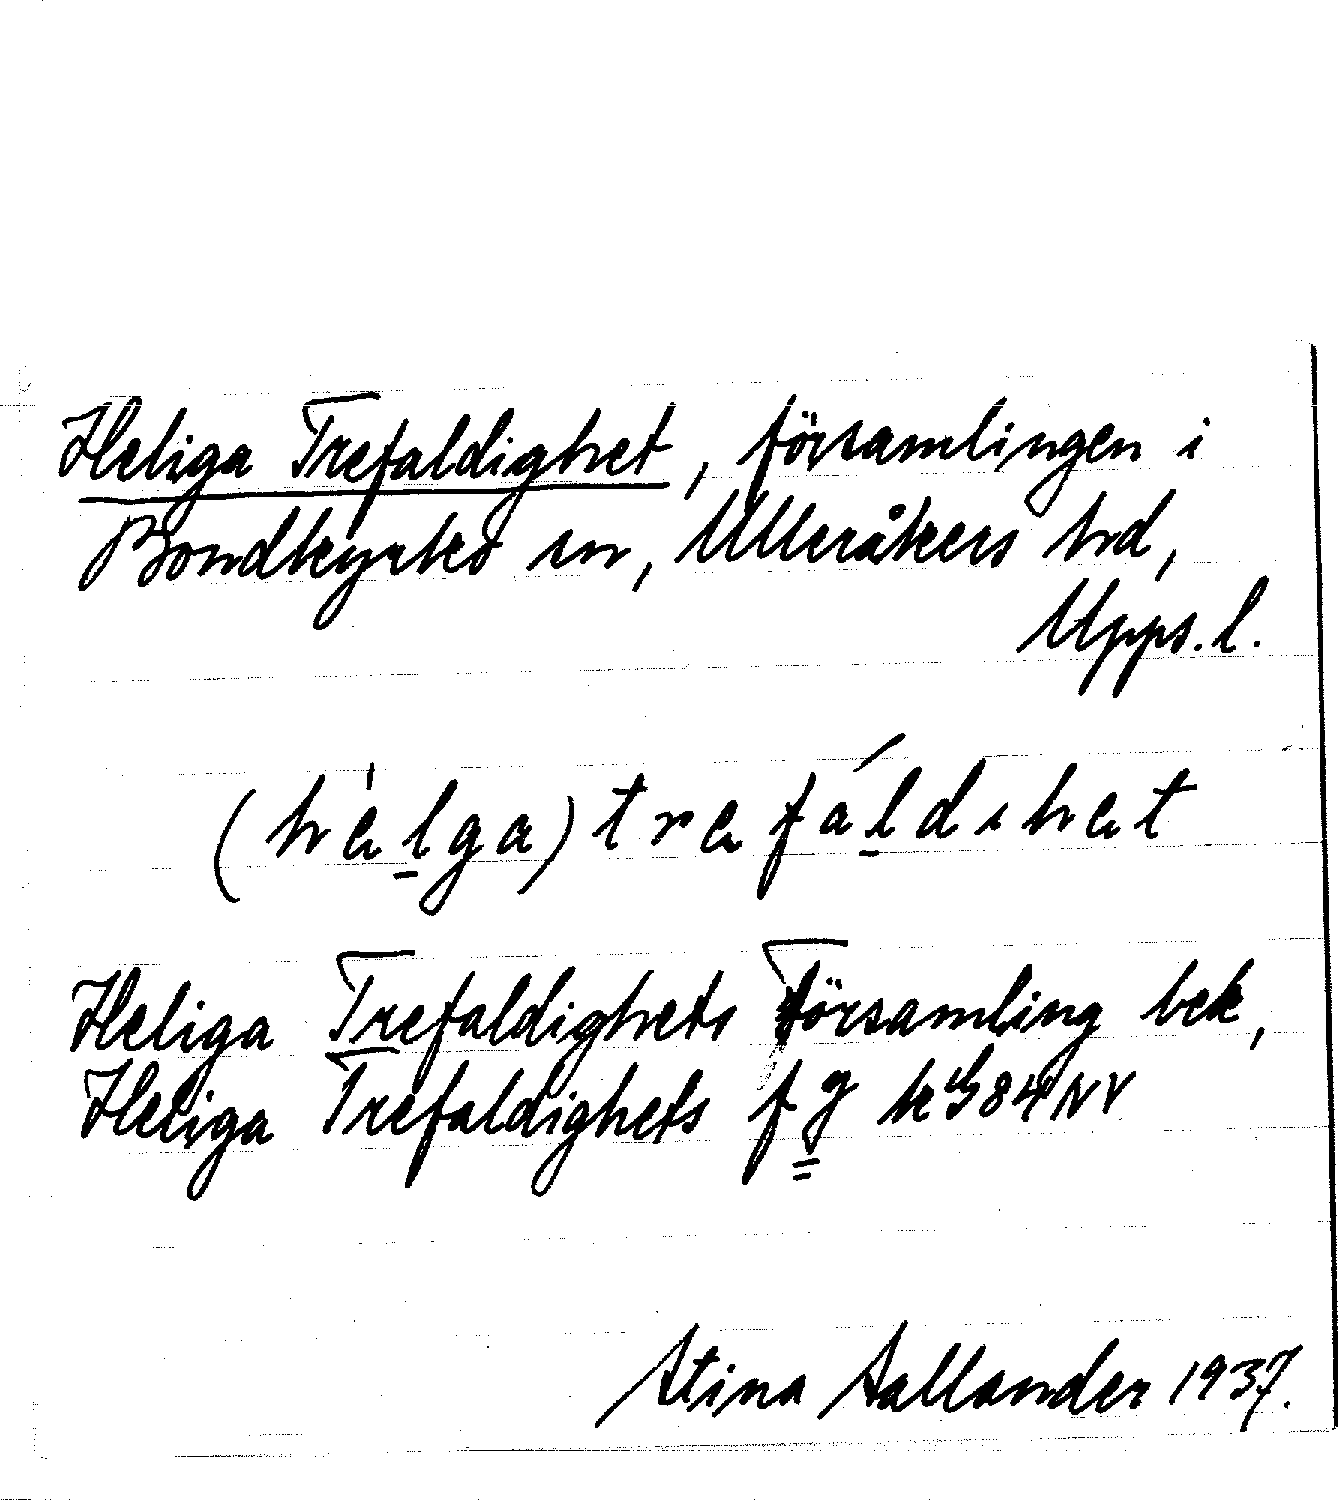 Heliga Trefaldighet, församlingen i
Bondkyrko sn, Ulleråkers hd,
Upps. l.
(hélga) trefáldihet
Heliga Trefaldighets Församling bek,
Heliga Trefaldighets f g k G 84 NV
Stina Sallander 1937.